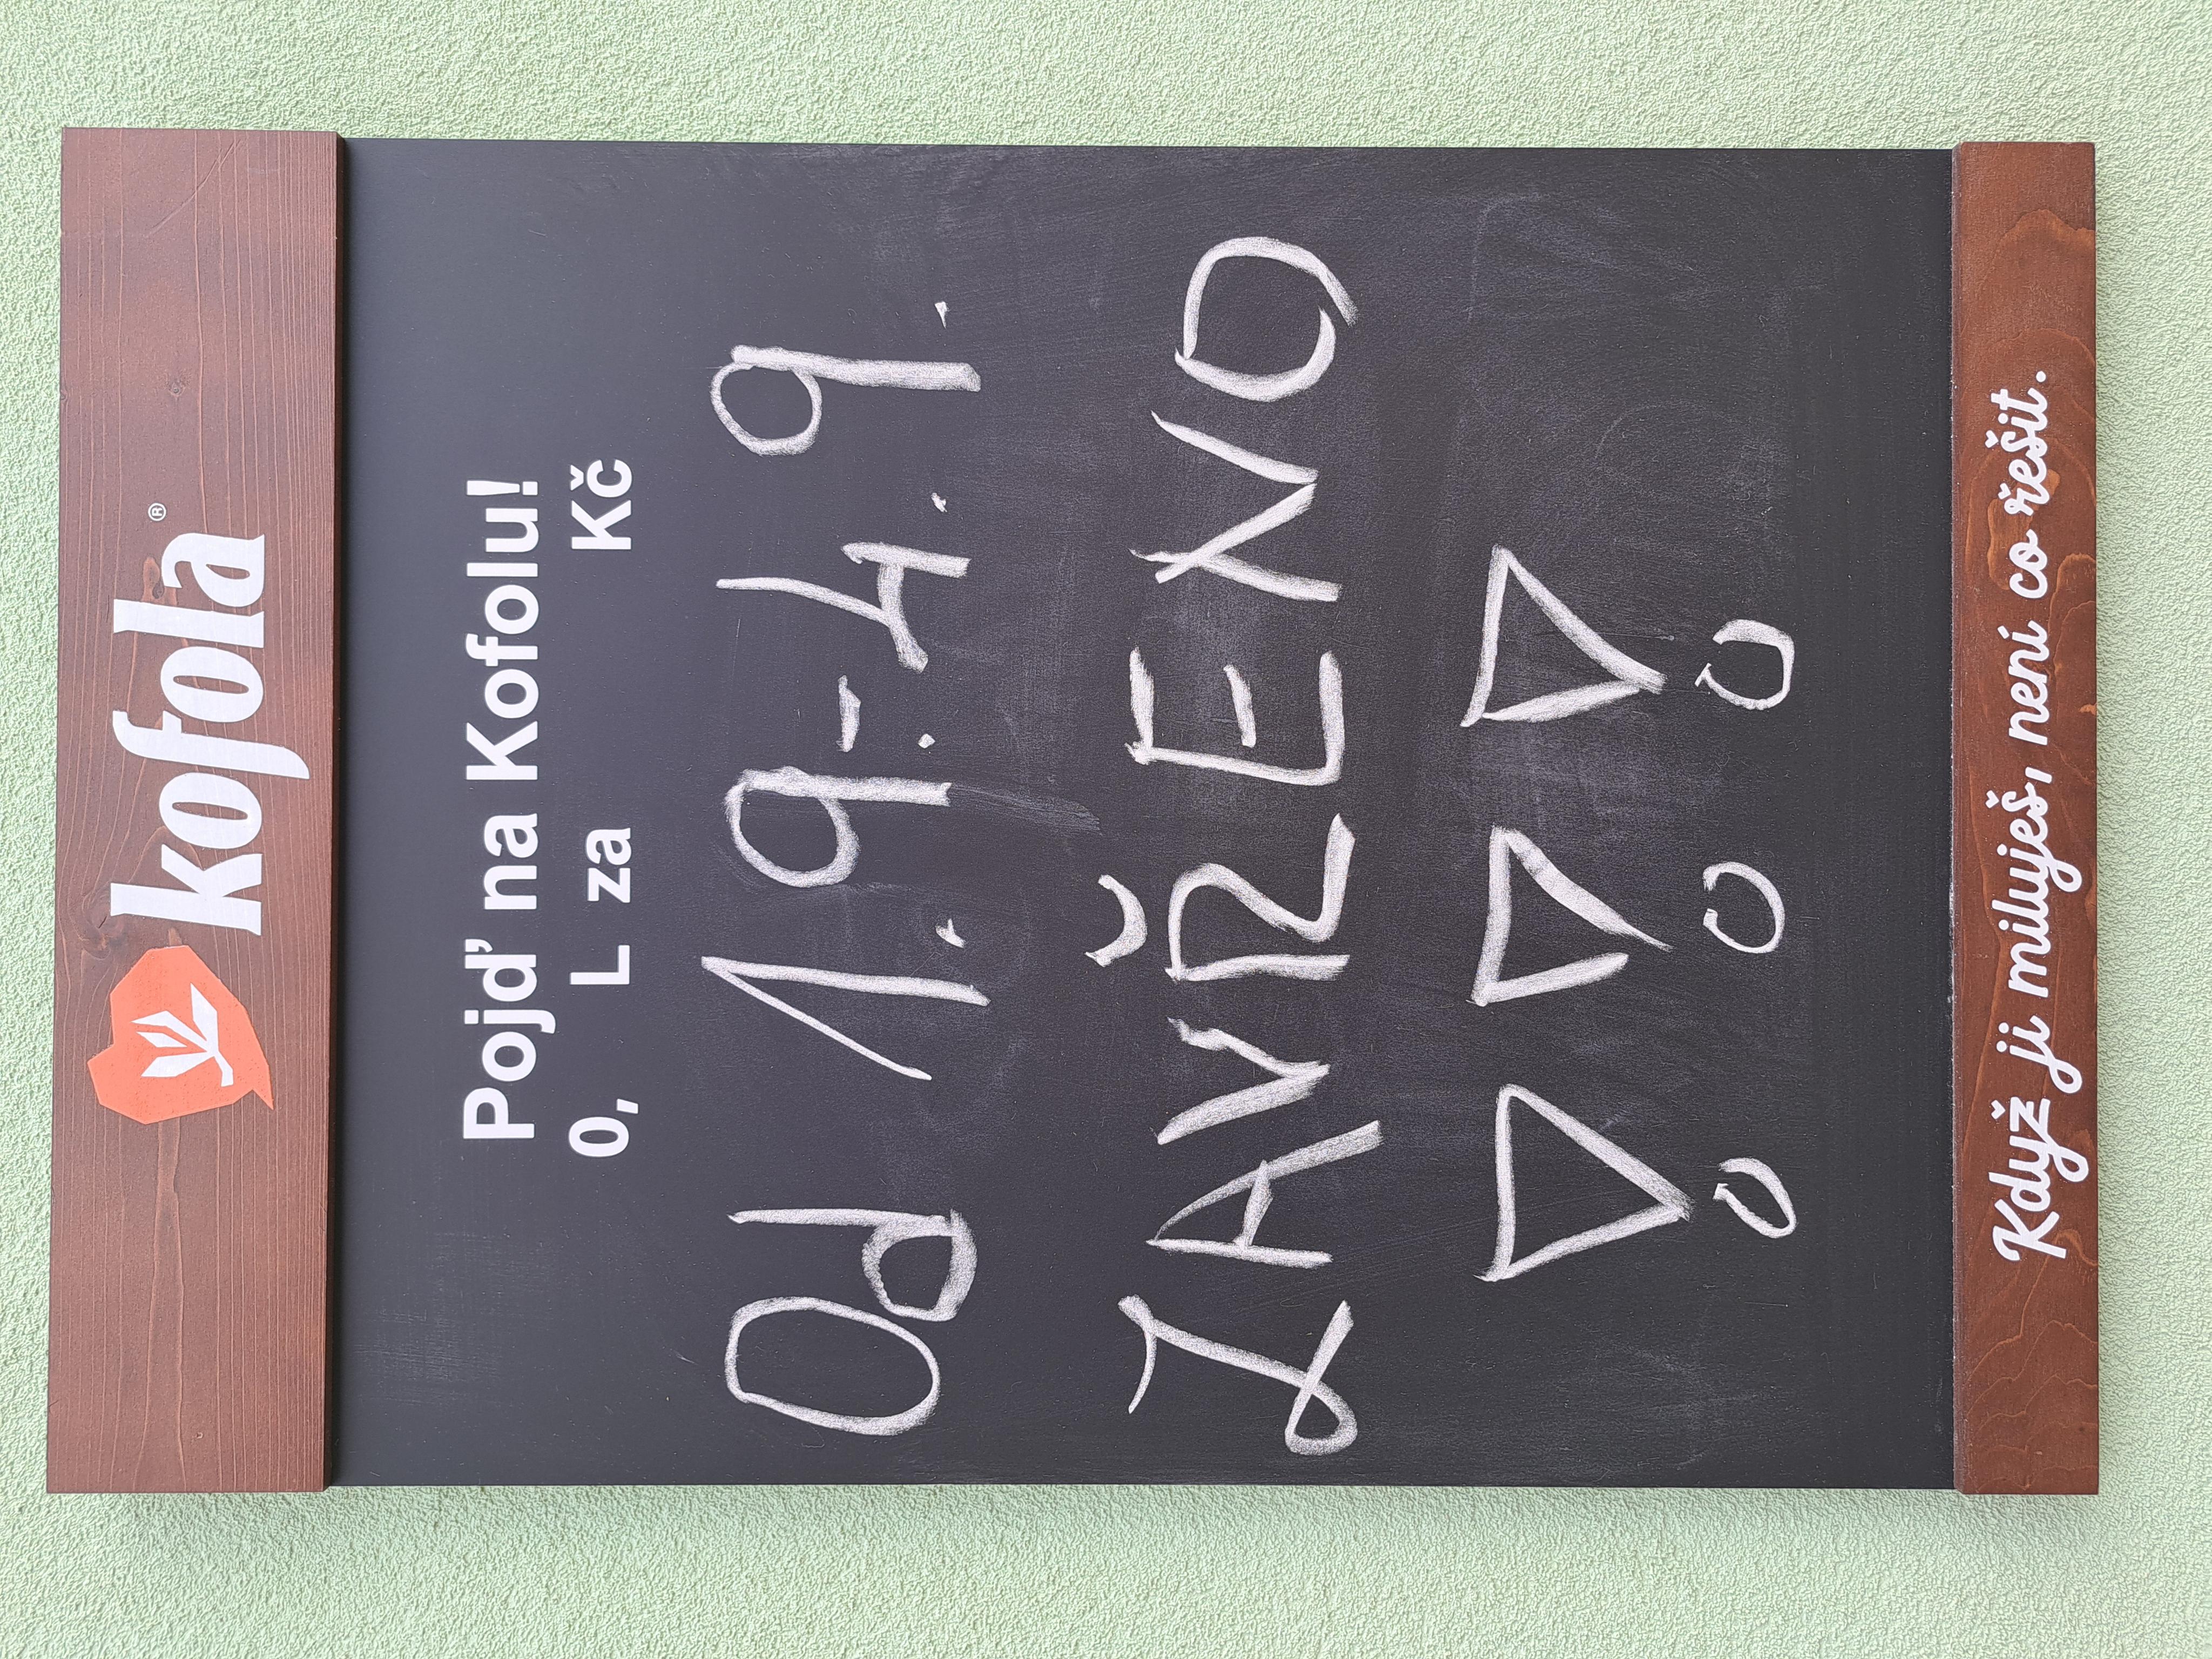 kofola®
Pojď na Kofolu!
0, L za Kč
Od 1.9.-4.9.
ZAVŘENO
!!!
Když ji miluješ, není co řešit.